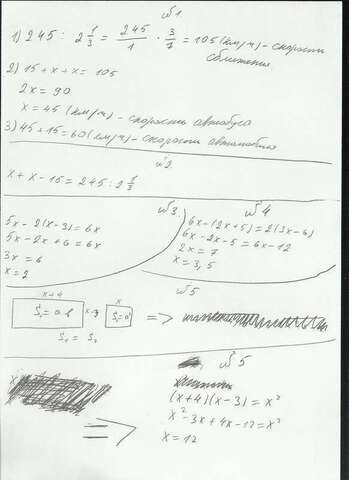 №1
1) 245 : 2 1/3 = 245/1 · 3/7 = 105 (км/ч) - скорость
сближения
2) 15 + x + x = 105
2x = 90
x = 45 (км/ч) - скорость автобуса
3) 45 + 15 = 60 (км/ч) - скорость автомобиля
№2
x + x - 15 = 245 : 2 1/3
№3
5x - 2(x-3) = 6x
5x - 2x + 6 = 6x
3x = 6
x = 2
№4
6x - (2x+5) = 2(3x-6)
6x - 2x - 5 = 6x - 12
2x = 7
x = 3,5
№5
x+4
S₁ = a b
x-3
x
S₂ = a²
=>
S₁ = S₂
№5
=>
(x+4)(x-3) = x²
x² - 3x + 4x - 12 = x²
x = 12